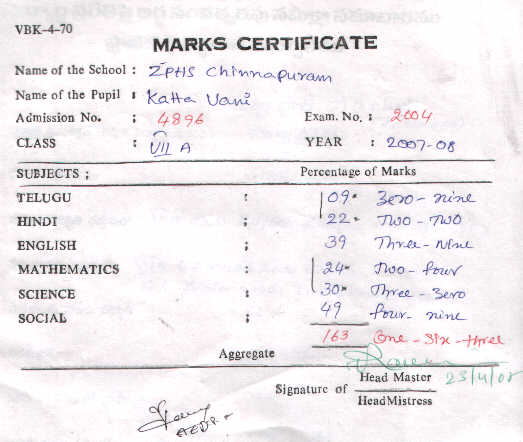 VBK-4-70
MARKS CERTIFICATE
Name of the School : ZPHS Chinnapuram
Name of the Pupil : Katta Vani
Admission No. : 4896 Exam. No. : 2004
CLASS : VII A YEAR : 2007-08
SUBJECTS ; Percentage of Marks
TELUGU : 09* Zero - nine
HINDI ; 22* Two - Two
ENGLISH ; 39 Three - Nine
MATHEMATICS : 24* Two - four
SCIENCE : 30* Three - Zero
SOCIAL ; 49 four - nine
163 One - Six - three
Aggregate
Signature of Head Master 23/4/08
HeadMistress